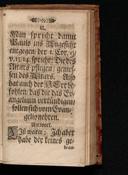 II.
Man spricht damit
Pauls ins Angesicht
entgegen der 1. Cor. 9/
v. 13. 14. spricht: Die des
Altars pflegen / genies-
sen des Altars. Also
hat auch der HErr be-
fohlen / daß die das Ev-
angelium verkündigen /
sollen sich vom Evan-
gelio nehren.
Antwort.
Es waren: Ich aber
habe der keines ge-